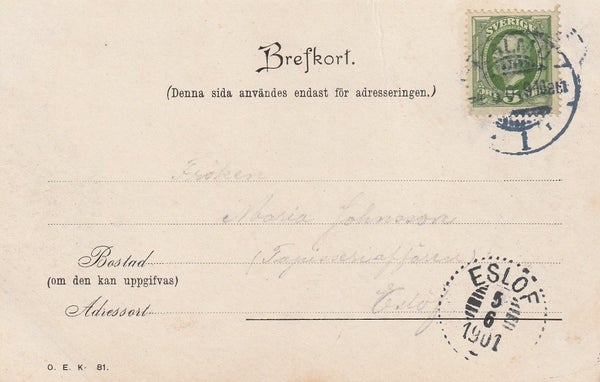 SVERIGE
5 ÖRE
1
Brefkort.
(Denna sida användes endast för adresseringen.)
Fröken
Maria Johnsson
(Tapisseriaffären)
Bostad
(om den kan uppgifvas)
Eslöf
Adressort
ESLÖF
5
6
1901
O. E. K. 81.